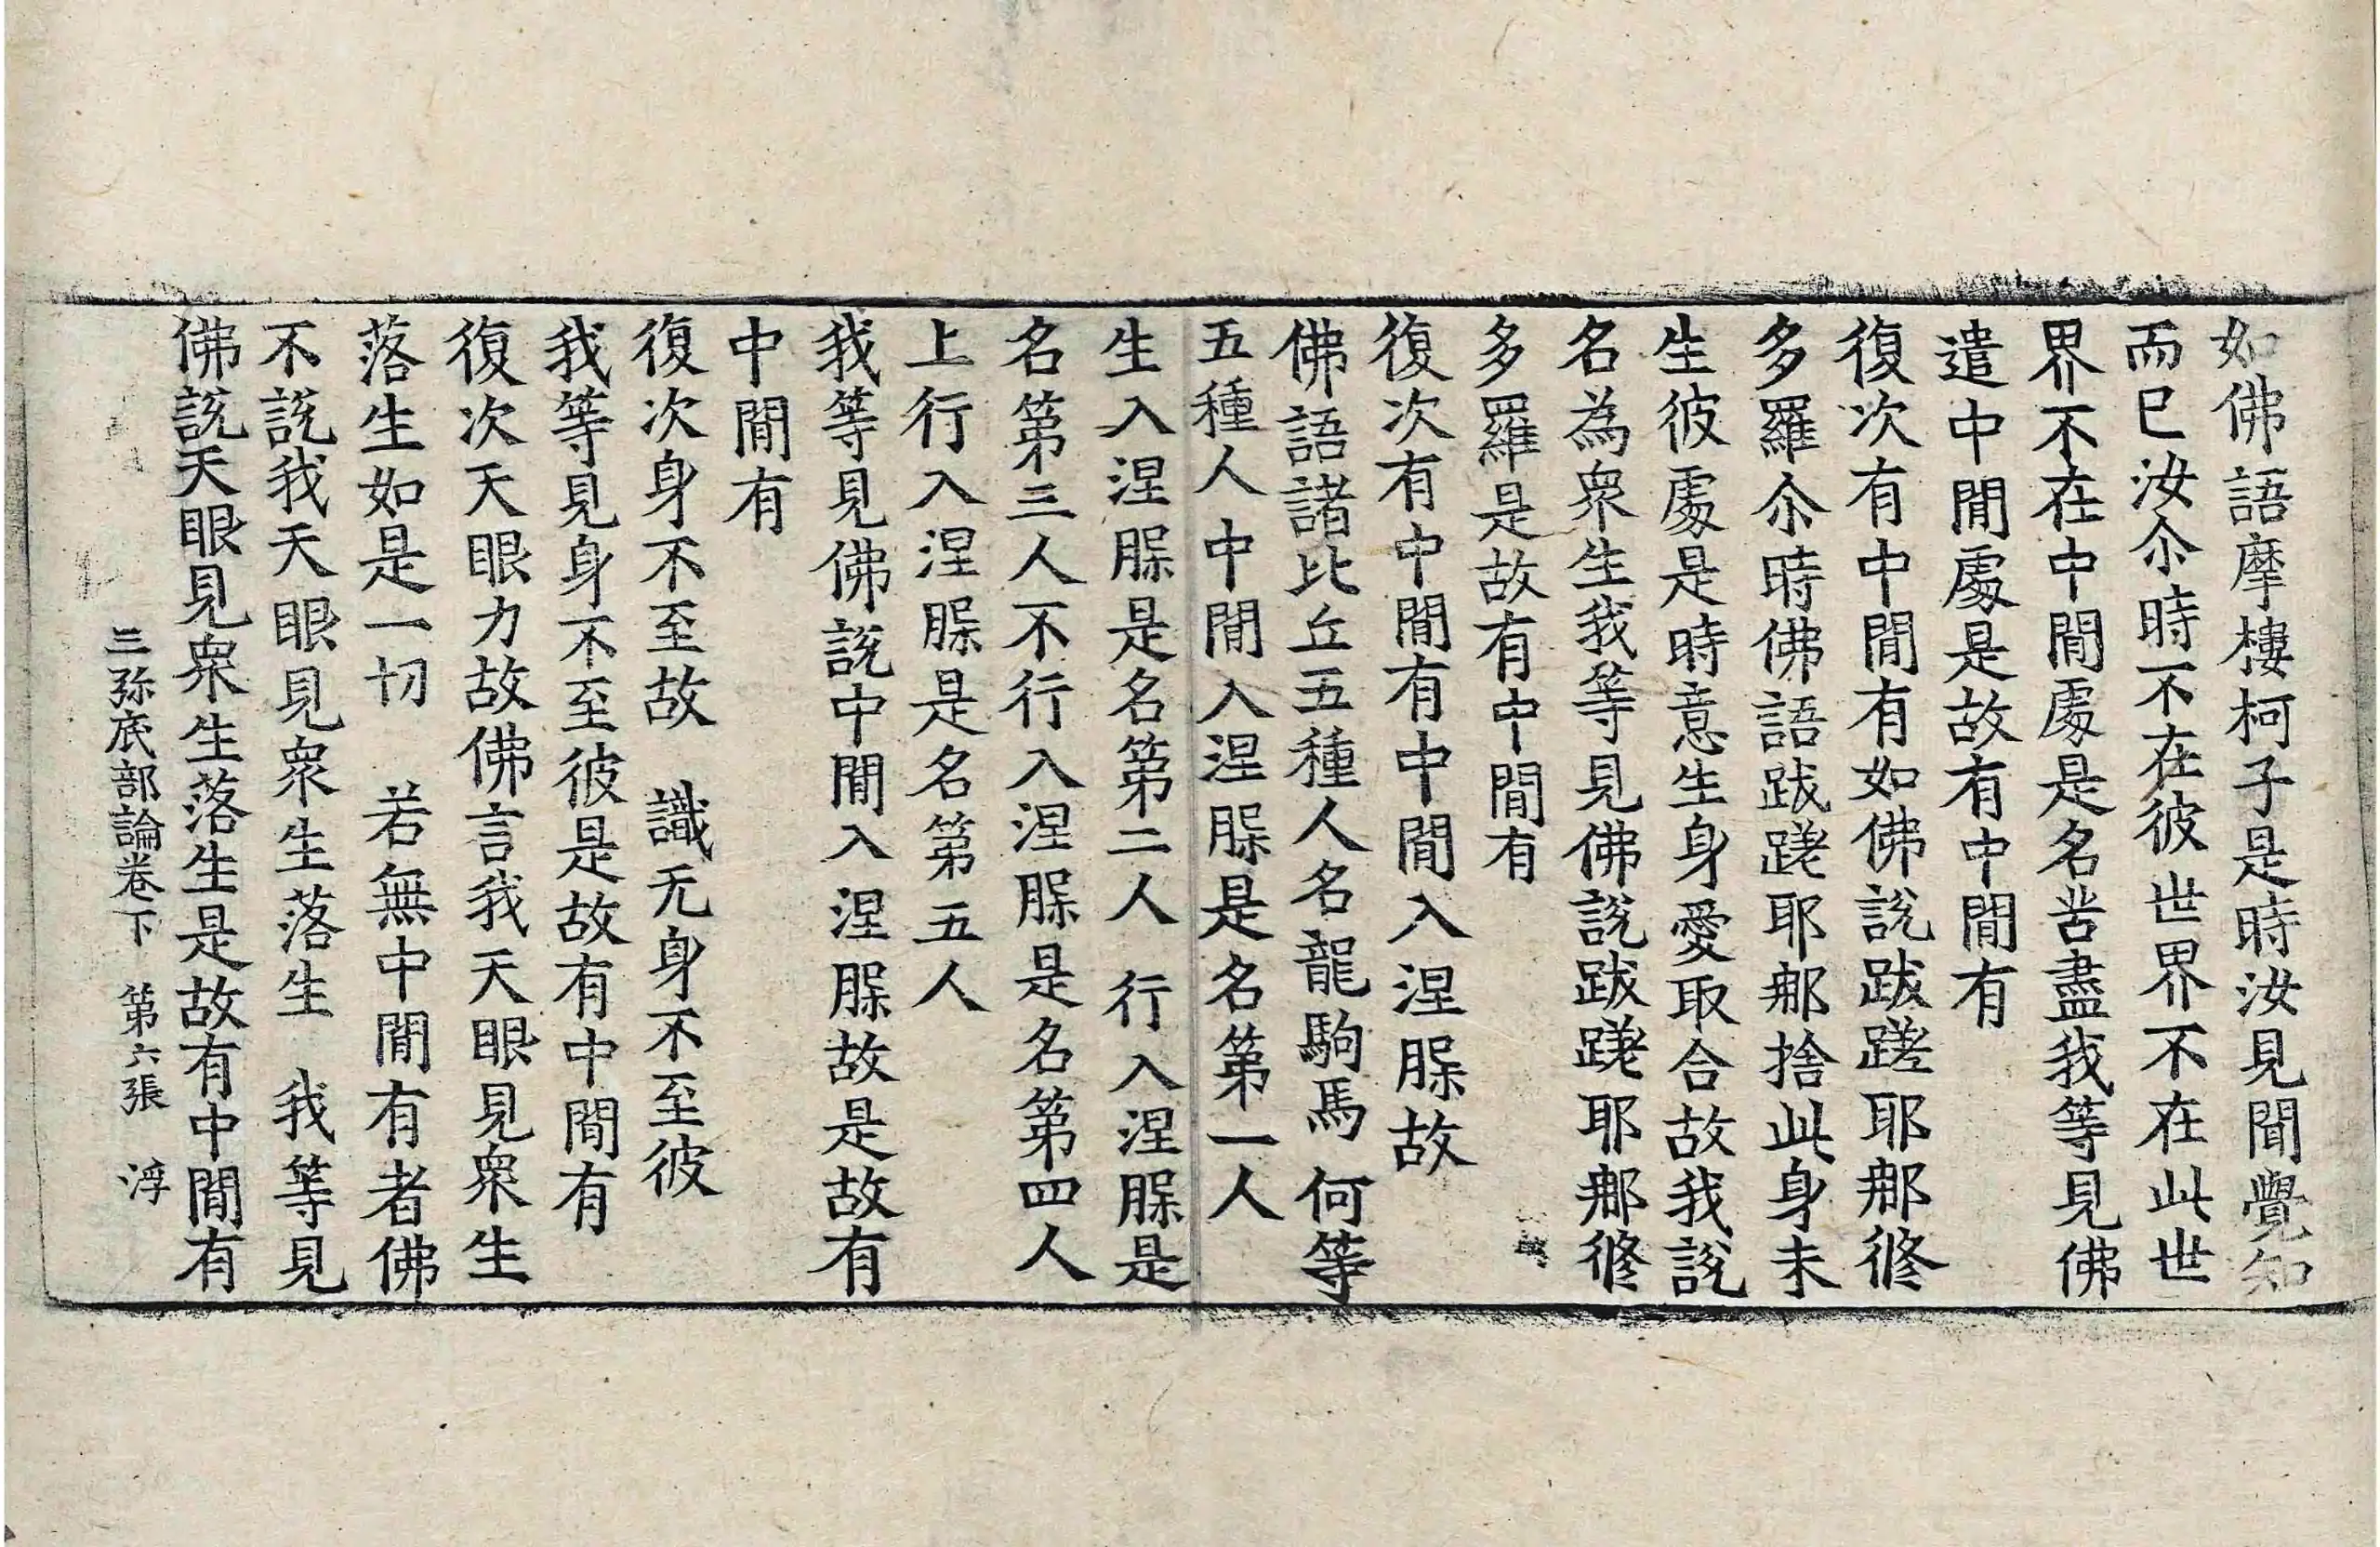 如佛語摩樓柯子是時汝見聞覺知
而已汝尒時不在彼世界不在此世
界不在中閒處是名苦盡我等見佛
遣中閒處是故有中閒有
復次有中閒有如佛說跋蹉耶郍俢
多羅尒時佛語跋蹉耶郍捨此身未
生彼處是時意生身愛取合故我說
名為衆生我等見佛說跋蹉耶郍俢
多羅是故有中閒有
復次有中閒有中閒入涅槃故
佛語諸比丘五種人名龍駒馬 何等
五種人中閒入涅槃是名第一人
生入涅槃是名第二人 行入涅槃是
名第三人不行入涅槃是名第四人
上行入涅槃是名第五人
我等見佛說中閒入涅槃故是故有
中閒有
復次身不至故 識无身不至彼
我等見身不至彼是故有中閒有
復次天眼力故佛言我天眼見衆生
落生如是一切 若無中閒有者佛
不說我天眼見衆生落生 我等見
佛說天眼見衆生落生是故有中閒有
三弥底部論卷下 第六張 浮